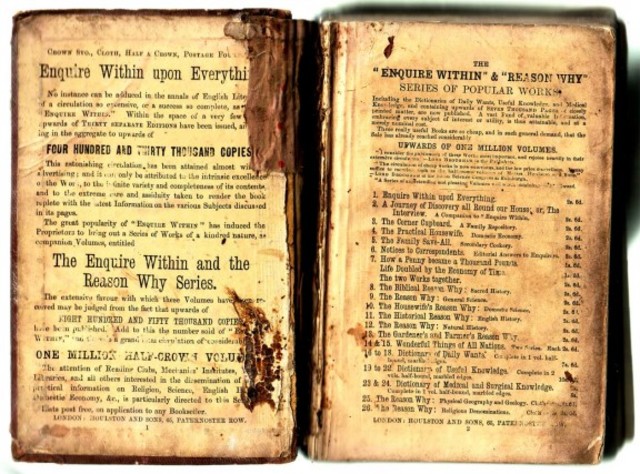 CROWN 8VO, CLOTH, HALF A CROWN, POSTAGE
Enquire Within upon
No instance can be adduced in the annals of English
of a circulation so extensive, or a success so complete, as
ENQUIRE WITHIN." Within the space of a very few
upwards of THIRTY SEPARATE EDITIONS have been issued,
ing in the aggregate to upwards of
FOUR HUNDRED AND THIRTY THOUSAND COPIES
This astonishing circulation has been attained almost
advertising; and is not only be attributed to the intrinsic
of the Work, to the infinite variety and completeness of its contents,
and to the extreme care and assiduity taken to render the book
replete with the latest Information on the various Subjects discussed
in its pages.
The great popularity of "ENQUIRE WITHIN" has induced the
Proprietors to bring out a Series of Works of a kindred nature, as
companion Volumes, entitled
The Enquire Within and the
Reason Why Series.
The extensive favour with which these Volumes have been
moved may be judged from the fact that upwards of
EIGHT HUNDRED AND FIFTY THOUSAND COPIES
have been published. Add to this the number sold of
ONE MILLION HALF-CROWN
The attention of Reading Clubs, Mechanics' Institutes,
Libraries, and all others interested in the dissemination of
practical information on Religion, Science, English
Domestic Economy, &c., is particularly directed to this
Lists post free, on application to any Bookseller.
LONDON: HOULSTON AND SONS, 65, PATERNOSTER ROW.
1
THE
"ENQUIRE WITHIN" & "REASON WHY"
SERIES OF POPULAR WORKS
Including the Dictionaries of Daily Wants, Useful Knowledge, and Medical
Knowledge, and containing upwards of SEVEN THOUSAND PAGES of closely
printed matter, are now published. A vast Fund of valuable
embracing every subject of interest or utility, is thus attainable, and at a
merely nominal cost.
These really useful Books are so cheap, and in such general demand, that the
Sale has already reached considerably
UPWARDS OF ONE MILLION VOLUMES.
1. Enquire Within upon Everything. 2s. 6d.
2. A Journey of Discovery all Round our House; or, The
Interview. A Companion to "Enquire Within. 2s. 6d.
3. The Corner Cupboard. A Family Repository. 2s. 6d.
4. The Practical Housewife. Domestic Economy. 2s. 6d.
5. The Family Save-All. Secondary Cookery. 2s. 6d.
6. Notices to Correspondents. Editorial Answers to Enquiries 2s. 6d.
7. How a Penny became a Thousand Pounds.
Life Doubled by the Economy of Time.
The two Works together. 2s. 6d.
8. The Biblical Reason Why: Sacred History. 2s. 6d.
9. The Reason Why: General Science. 2s. 6d.
10. The Housewife's Reason Why: Domestic Science. 2s. 6d.
11. The Historical Reason Why: English History. 2s. 6d.
12. The Reason Why: Natural History. 2s. 6d.
13. The Gardener's and Farmer's Reason Why. 2s. 6d.
14 & 15. Wonderful Things of All Nations. Two Series. Each 2s. 6d.
16 to 18. Dictionary of Daily Wants. Complete in 1 vol. half-
bound, marbled edges. 7s. 6d.
19 to 22. Dictionary of Useful Knowledge. Complete in 2
vols. half-bound, marbled edges.
23 & 24. Dictionary of Medical and Surgical Knowledge.
Complete in 1 vol. half-bound, marbled edges.
25. The Reason Why: Physical Geography and Geology.
26. The Reason Why: Religious Denominations.
LONDON: HOULSTON AND SONS, 65, PATERNOSTER ROW.
2